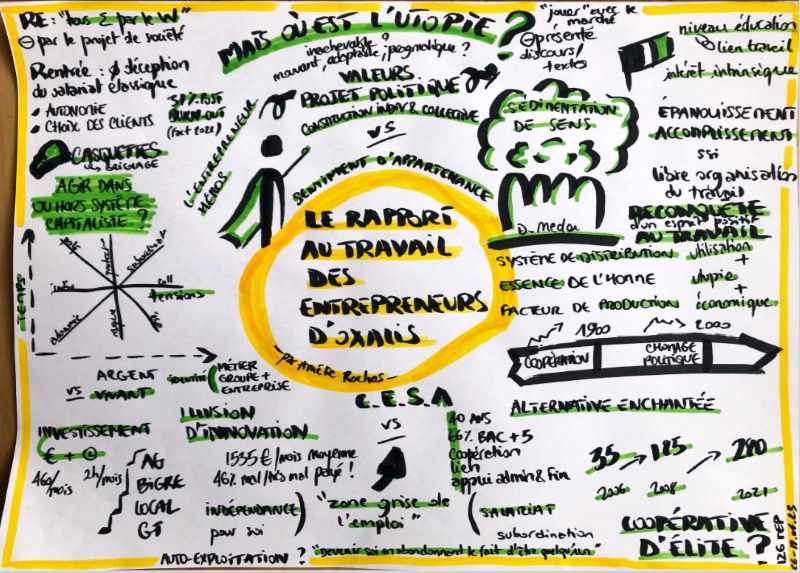 RE: "tous Σ par le W"
⊖ par le projet de société
Rentrée : ∅ déception
du salariat classique
• AUTONOMIE
• CHOIX DES CLIENTS
BURN-OUT
CASQUETTES
BRICOLAGE
AGIR DANS
OU HORS SYSTÈME
CAPITALISTE ?
L'ENTREPRENEUR
HÉROS
MAIS OÙ EST L'UTOPIE ?
inachevable ?
mouvant, adaptable, pragmatique ?
VALEURS
PROJET POLITIQUE
CONSTRUCTION INDIV & COLLECTIVE
VS
SENTIMENT D'APPARTENANCE
"jouer" avec le
marché
présenté
discours/
textes
niveau éducation
lien travail
intérêt intrinsèque
SÉDIMENTATION
DE SENS
D. Meda
ÉPANOUISSEMENT
ACCOMPLISSEMENT
SSI
libre organisation
du travail
RECONQUÊTE
d'un esprit positif
AU TRAVAIL
SYSTÈME DE DISTRIBUTION
ESSENCE DE L'HOMME
FACTEUR DE PRODUCTION
utilisation
+
utopie
+
économique
LE RAPPORT
AU TRAVAIL
DES
ENTREPRENEURS
D'OXALIS
TEMPS
tensions
1900
2000
COOPÉRATION
CHÔMAGE
POLITIQUE
ARGENT
VS VIVANT
identité
MÉTIER
GROUPE +
ENTREPRISE
INVESTISSEMENT
€ +
460/
mois
2h/mois
AG
BIGRE
LOCAL
GT
ILLUSION
D'INNOVATION
1555 €/mois moyenne
46% mal/très mal payé !
INDÉPENDANCE
pour soi
C.E.S.A
VS
"zone grise de
l'emploi"
40 ANS
66% BAC + 5
coopération
lien
appui admin & fin
SALARIAT
subordination
ALTERNATIVE ENCHANTÉE
35 → 185 → 290
2006 2008 2021
COOPÉRATIVE
D'ÉLITE ?
126 TEP
AUTO-EXPLOITATION ? "Devenir soi en abandonnant le fait d'être quelqu'un"